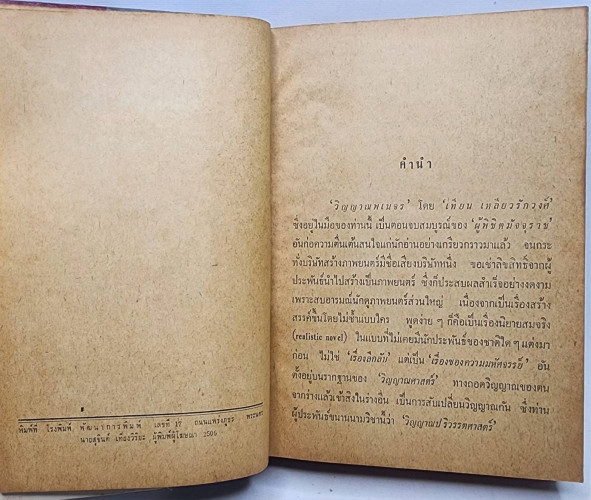 พิมพ์ที่ โรงพิมพ์ พัฒนาการพิมพ์ เลขที่ 17 ถนนแพร่งภูธร พระนคร
นายสุจินต์ เที่ยงวิริยะ ผู้พิมพ์ผู้โฆษณา
คำนำ
'วิญญาณพเนจร' โดย 'เทียน เหลียวรักวงศ์'
ซึ่งอยู่ในมือของท่านนี้ เป็นตอนจบสมบูรณ์ของ 'ผู้พิชิตมัจจุราช'
อันก่อความตื่นเต้นสนใจแก่นักอ่านอย่างเกรียวกราวมาแล้ว จนกระ
ทั่งบริษัทสร้างภาพยนตร์มีชื่อเสียงบริษัทหนึ่ง ขอเช่าลิขสิทธิ์จากผู้
ประพันธ์นำไปสร้างเป็นภาพยนตร์ ซึ่งก็ประสบผลสำเร็จอย่างงดงาม
เพราะสบอารมณ์นักดูภาพยนตร์ส่วนใหญ่ เนื่องจากเป็นเรื่องสร้าง
สรรค์ขึ้นโดยไม่ซ้ำแบบใคร พูดง่าย ๆ ก็คือเป็นเรื่องนิยายสมจริง
(realistic novel) ในแบบที่ไม่เคยมีนักประพันธ์ของชาติใด ๆ แต่งมา
ก่อน ไม่ใช่ 'เรื่องลึกลับ' แต่เป็น 'เรื่องของความมหัศจรรย์' อัน
ตั้งอยู่บนรากฐานของ 'วิญญาณศาสตร์' ทางถอดวิญญาณของคน
จากร่างแล้วเข้าสิงในร่างอื่น เป็นการสับเปลี่ยนวิญญาณกัน ซึ่งท่าน
ผู้ประพันธ์ขนานนามวิชานี้ว่า 'วิญญาณปริวรรตศาสตร์'